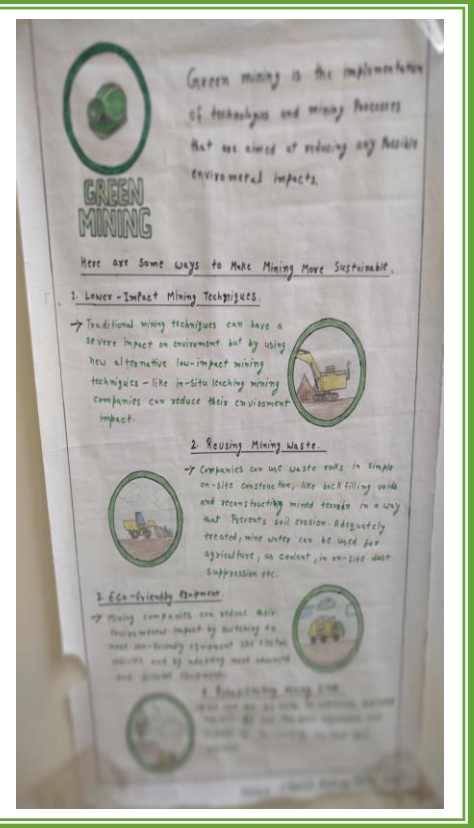 Green mining is the implementation
of technologies and mining Processes
that are aimed at reducing any Possible
envirometal impacts.
GREEN
MINING
Here are Some ways to Make Mining More Sustainable.
1. Lower-Impact Mining Techniques.
→ Traditional mining techniques can have a
severe impact on enviroment but by using
new alternative low-impact mining
techniques - like in-situ leaching mining
companies can reduce their enviroment
impact.
2. Reusing Mining Waste.
→ Companies can use waste rocks in simple
on-site construction, like backfilling voids
and reconstructing mined terrain in a way
that Prevents soil erosion. Adequately
treated, mine water can be used for
agriculture, as coolant, in on-site dust
suppression etc.
3. Eco-friendly Equipment.
→ Mining companies can reduce their
environmental impact by switching to
more eco-friendly equipment like
and by adopting most advanced
and
4.